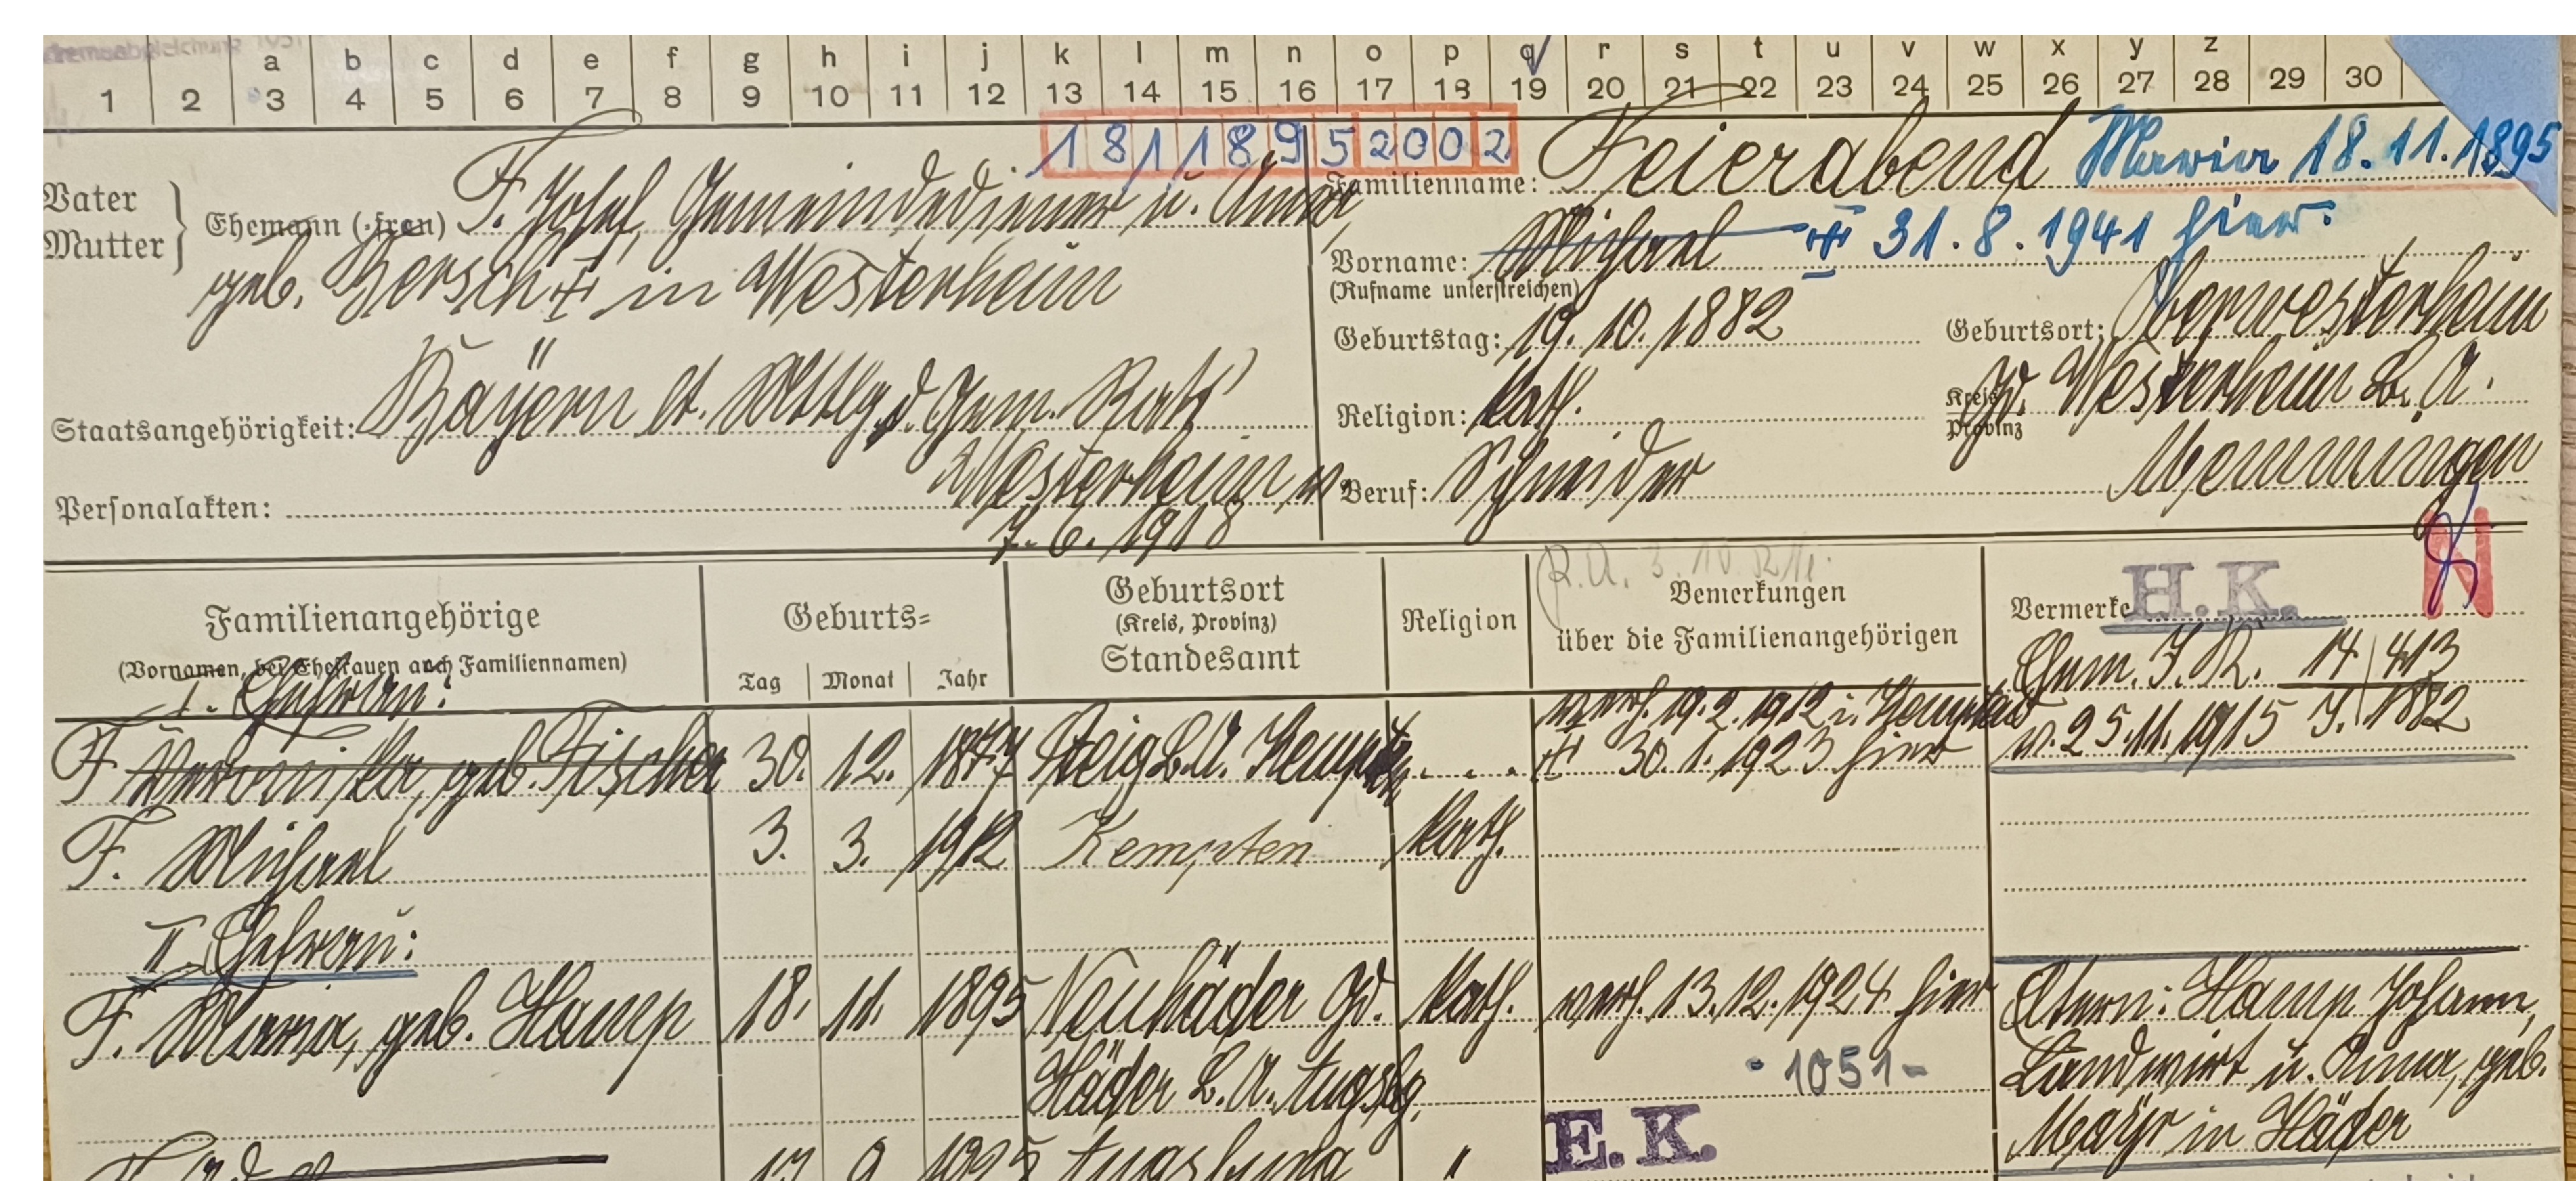 a b c d e f g h i j k l m n o p q r s t u v w x y z
1 2 3 4 5 6 7 8 9 10 11 12 13 14 15 16 17 18 19 20 21 22 23 24 25 26 27 28 29 30
18118952002
Familienname: Feierabend Maria 18.11.1895
Vater
Mutter } Ehemann (-fren) F. Josef, Gemeindediener u. Anna
geb. Bersch ‡ in Westerheim
Vorname: Michael ‡ 31.8.1941 hier.
(Rufname unterstreichen)
Geburtstag: 19.10.1882 Geburtsort: Oberwesterheim
Staatsangehörigkeit: Bayern lt. Mttlg. d. Gem. Rats
Westerheim v.
7.6.1918
Religion: kath. Kreis Provinz Gd. Westerheim B.A.
Memmingen
Personalakten:
Beruf: Schneider
Familienangehörige
(Vornamen, bei Ehefrauen auch Familiennamen)
Geburts=
Tag Monat Jahr
Geburtsort
(Kreis, Provinz)
Standesamt
Religion
Bemerkungen
über die Familienangehörigen
Vermerke H.K. N
I. Ehefrau:
F. Veronika, geb. Fischer 30. 12. 1877 Steig B.A. Kempten verh. 19.2.1912 i. Kempten
‡ 30.1.1923 hier
14/413
v. 25.11.1915 J. 1882
F. Michael 3. 3. 1912 Kempten kath.
II. Ehefrau:
F. Maria, geb. Hamp 18. 11. 1895 Neuhäder Gd. kath. verh. 13.12.1924 hier Eltern: Hamp Johann,
Häder B.A. Augsbg. - 1051 - Landwirt u. Anna, geb.
E.K. Mayr in Häder
Augsburg "